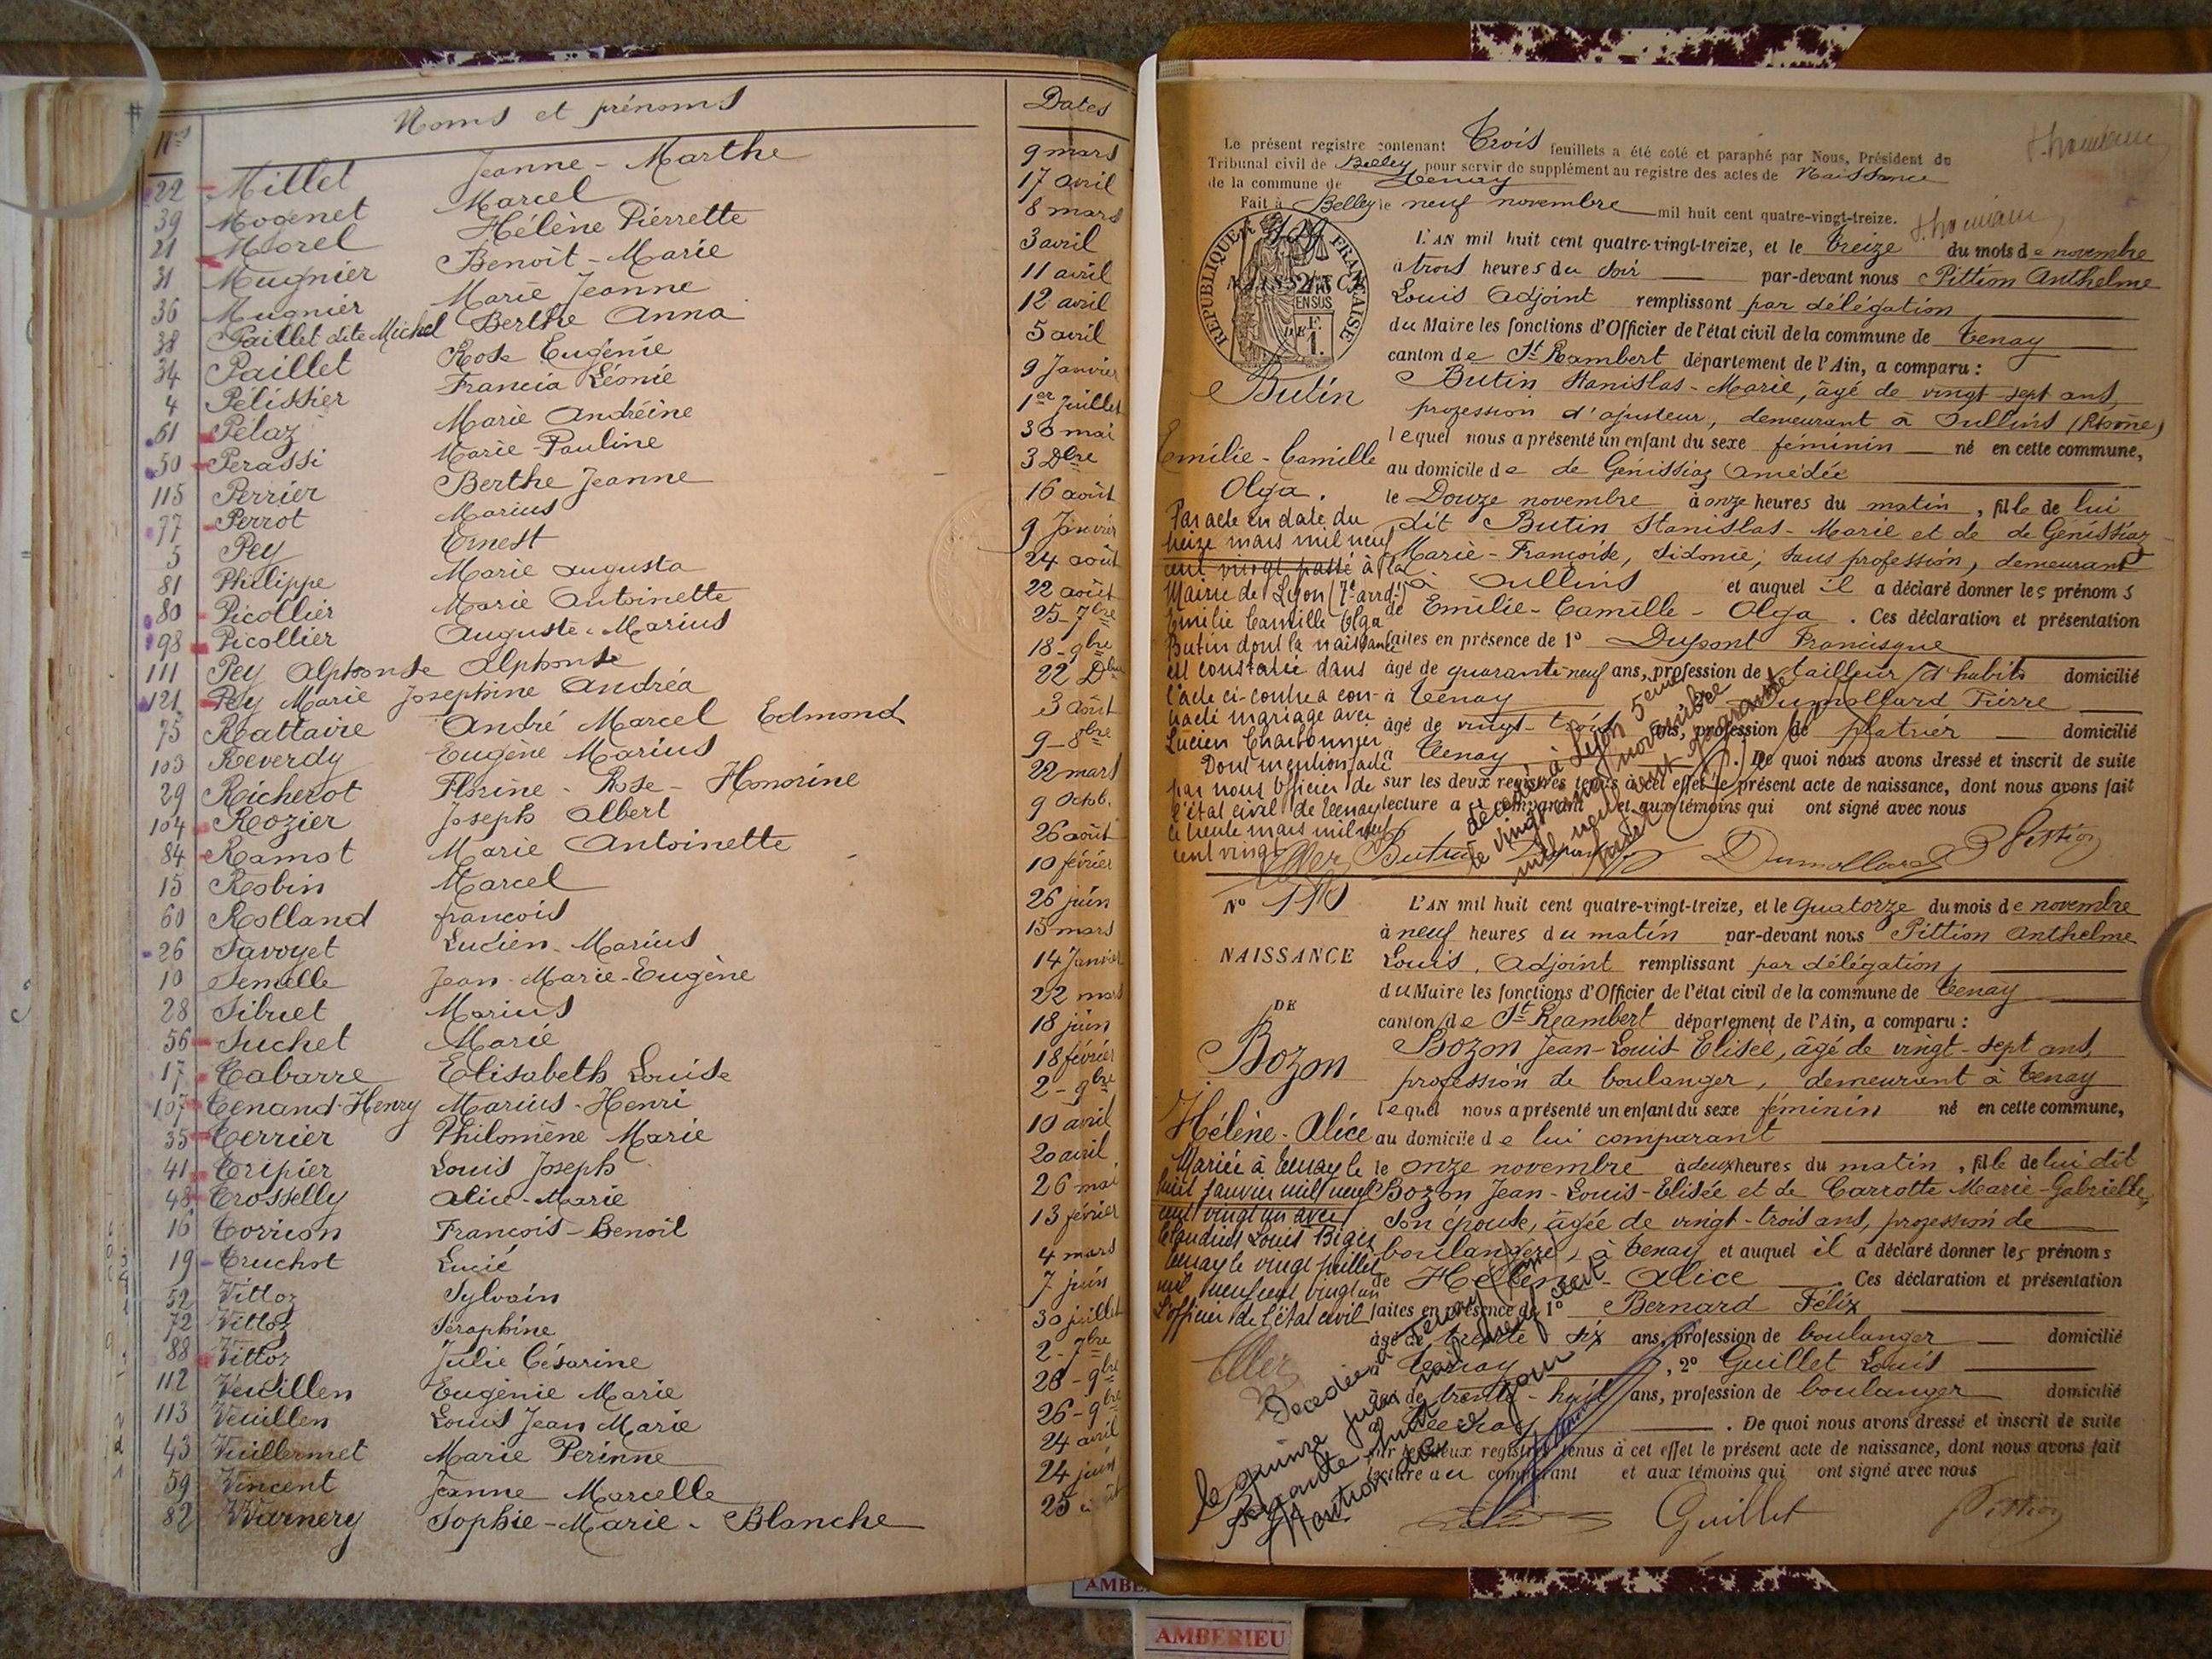 Nos Noms et prénoms Dates
22 Millet Jeanne-Marthe 9 mars
39 Mogenet Marcel 17 avril
21 Morel Hélène Pierrette 8 mars
31 Mugnier Benoit-Marie 3 avril
36 Mugnier Marie Jeanne 11 avril
38 Paillet dite Michel Berthe Anna 12 avril
34 Paillet Rose Eugénie 5 avril
4 Pélissier Francia Léonie 9 Janvier
61 Pélaz Marie Andréine 1er Juillet
50 Perassi Marie-Pauline 30 mai
115 Perrier Berthe Jeanne 3 Dbre
77 Perrot Marius 16 août
5 Pey Ernest 9 Janvier
81 Philippe Marie Augusta 24 août
80 Picollier Marie Antoinette 22 août
98 Picollier Auguste-Marius 25-7bre
111 Pey Alphonse Alphonse 18-9bre
121 Pey Marie Josephine Andréa 22 Dbre
75 Rattaire André Marcel Edmond 3 août
103 Reverdy Eugène Marius 9-8bre
29 Richerot Florine-Rose-Honorine 22 mars
104 Rozier Joseph Albert 9 Octob.
84 Ramot Marie Antoinette 26 août
15 Robin Marcel 10 février
60 Rolland françois 26 juin
26 Savoyet Lucien-Marius 15 mars
10 Semelle Jean-Marie-Eugène 14 Janvier
28 Sibuet Marius 22 mars
56 Suchet Marie 18 juin
17 Tabarre Elisabeth Louise 18 février
107 Tenand-Henry Marius-Henri 2-9bre
35 Terrier Philomène Marie 10 avril
41 Tripier Louis Joseph 20 avril
48 Trosselly Alice-Marie 26 mai
16 Torrion François-Benoît 13 février
19 Truchot Lucie 4 mars
52 Vittoz Sylvain 7 juin
72 Vittoz Séraphine 30 juillet
88 Vittoz Julie Césarine 2-7bre
112 Veuillen Eugénie Marie 28-9bre
113 Veuillen Louis Jean Marie 26-9bre
43 Vuillermet Marie Perinne 24 avril
59 Vincent Jeanne Marcelle 24 juin
82 Warnery Sophie-Marie-Blanche 25
Le présent registre contenant Trois feuillets a été coté et paraphé par Nous, Président du
Tribunal civil de Belley pour servir de supplément au registre des actes de Naissance
de la commune de Tenay
Fait à Belley le neuf novembre mil huit cent quatre-vingt-treize.
RÉPUBLIQUE FRANÇAISE
NAISSANCE
EN SUS
DE
L'AN mil huit cent quatre-vingt-treize, et le treize du mois de novembre
à trois heures du soir par-devant nous Pittion Anthelme
Louis Adjoint remplissant par délégation
du Maire les fonctions d'Officier de l'état civil de la commune de Tenay
canton de St Rambert département de l'Ain, a comparu :
Butin
Butin Stanislas-Marie, âgé de vingt-sept ans,
profession d'ajusteur, demeurant à Oullins (Rhône)
lequel nous a présenté un enfant du sexe féminin né en cette commune,
Emilie-Camille
Olga.
au domicile de de Génissiaz Amédée
le Douze novembre à onze heures du matin, fille de lui
dit Butin Stanislas-Marie et de de Génissiaz
Marie-Françoise, Sidonie, sans profession, demeurant
à Oullins et auquel il a déclaré donner les prénoms
de Emilie-Camille-Olga. Ces déclaration et présentation
faites en présence de 1° Dupont Francisque
âgé de quarante-neuf ans, profession de tailleur d'habits domicilié
à Tenay Dumollard Pierre
âgé de vingt-trois ans, profession de platrier domicilié
à Tenay. De quoi nous avons dressé et inscrit de suite
sur les deux registres tenus à cet effet le présent acte de naissance, dont nous avons fait
lecture au comparant et aux témoins qui ont signé avec nous
Par acte en date du
treize mars mil neuf
cent vingt passé à la
Mairie de Lyon (7e arrdt)
Emilie Camille Olga
Butin dont la naissance
est constatée dans
l'acte ci-contre a con-
tracté mariage avec
Lucien Charbonnier
Dont mention faite
par nous Officier de
l'état civil de Tenay
le trente mars mil neuf
cent vingt
décédée à Lyon 5eme
le vingt novembre
mil neuf cent
Butin Dumollard Pittion
N° 110
NAISSANCE
DE
Bozon
Hélène-Alice
L'AN mil huit cent quatre-vingt-treize, et le Quatorze du mois de novembre
à neuf heures du matin par-devant nous Pittion Anthelme
Louis, Adjoint remplissant par délégation
du Maire les fonctions d'Officier de l'état civil de la commune de Tenay
canton de St Rambert département de l'Ain, a comparu :
Bozon Jean-Louis Elisée, âgé de vingt-sept ans,
profession de boulanger, demeurant à Tenay
lequel nous a présenté un enfant du sexe féminin né en cette commune,
au domicile de lui comparant
le onze novembre à deux heures du matin, fille de lui dit
Bozon Jean-Louis-Elisée et de Carrotte Marie-Gabrielle,
son épouse, âgée de vingt-trois ans, profession de
boulangère, à Tenay et auquel il a déclaré donner les prénoms
de Hélène-Alice. Ces déclaration et présentation
faites en présence de 1° Bernard Félix
âgé de trente six ans, profession de boulanger domicilié
à Tenay, 2° Guillet Louis
âgé de trente-huit ans, profession de boulanger domicilié
à Tenay. De quoi nous avons dressé et inscrit de suite
sur les deux registres tenus à cet effet le présent acte de naissance, dont nous avons fait
lecture au comparant et aux témoins qui ont signé avec nous
Mariée à Tenay le
huit Janvier mil neuf
cent vingt un avec
Claudius Louis
Tenay le vingt juillet
mil neuf cent vingt un
L'officier de l'état civil
Décédée à Tenay (Ain)
le quinze juin mil neuf cent
soixante huit
Mention de ce jour
Guillet Pittion
AMBERIEU